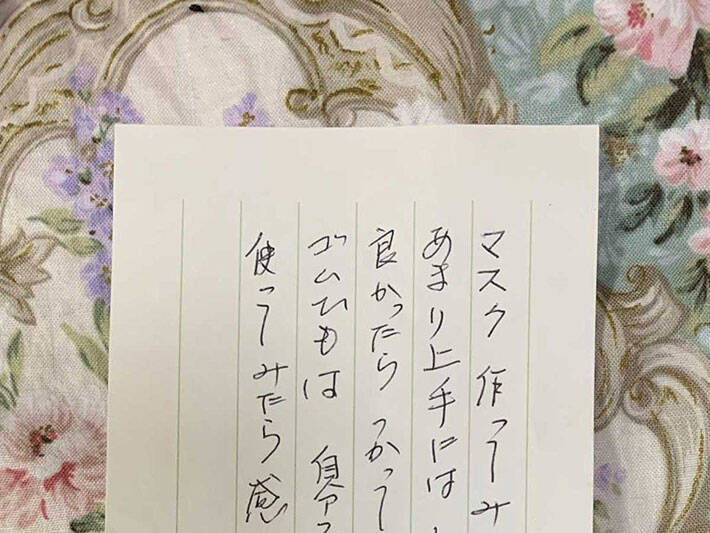 マスク 作ってみ
あまり上手には
良かったら つかって
ゴムひもは 自分
使ってみたら 感